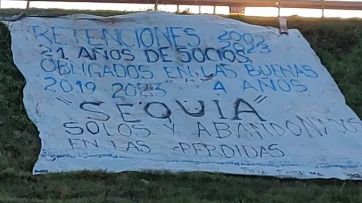 RETENCIONES 2002 2023
21 AÑOS DE SOCIOS
OBLIGADOS EN LAS BUENAS
2019 2023 4 AÑOS
"SEQUIA"
SOLOS Y ABANDONADOS
EN LAS PERDIDAS